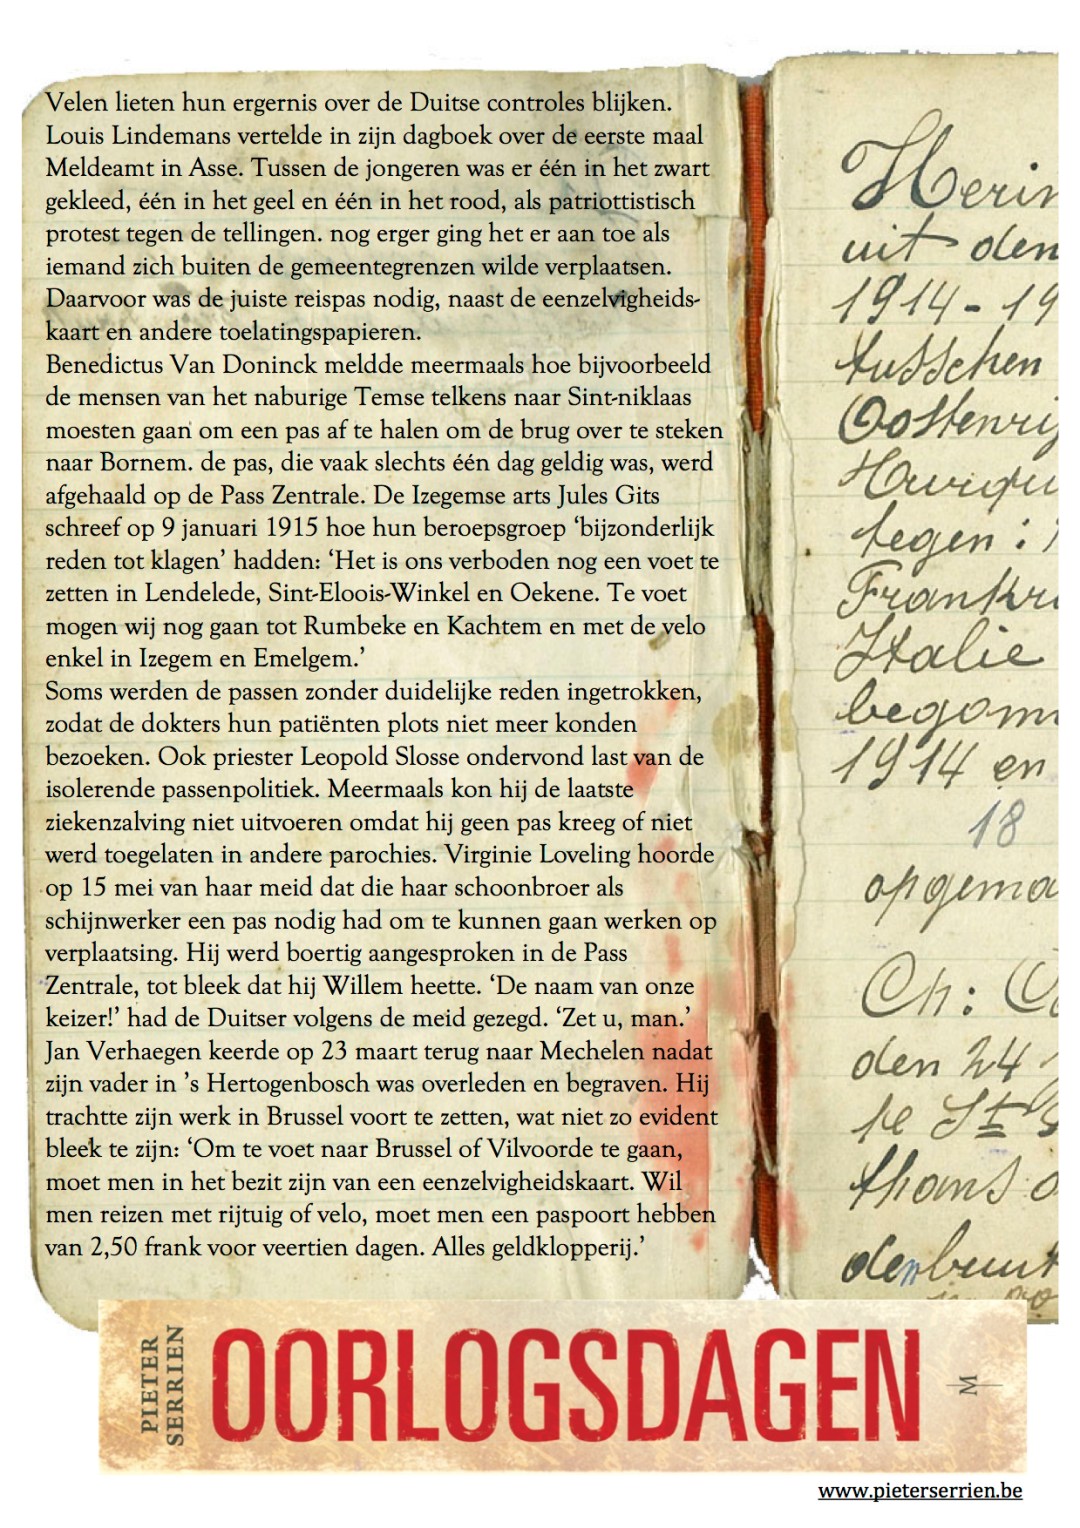 Velen lieten hun ergernis over de Duitse controles blijken.
Louis Lindemans vertelde in zijn dagboek over de eerste maal
Meldeamt in Asse. Tussen de jongeren was er één in het zwart
gekleed, één in het geel en één in het rood, als patriottistisch
protest tegen de tellingen. nog erger ging het er aan toe als
iemand zich buiten de gemeentegrenzen wilde verplaatsen.
Daarvoor was de juiste reispas nodig, naast de eenzelvigheids-
kaart en andere toelatingspapieren.
Benedictus Van Doninck meldde meermaals hoe bijvoorbeeld
de mensen van het naburige Temse telkens naar Sint-niklaas
moesten gaan om een pas af te halen om de brug over te steken
naar Bornem. de pas, die vaak slechts één dag geldig was, werd
afgehaald op de Pass Zentrale. De Izegemse arts Jules Gits
schreef op 9 januari 1915 hoe hun beroepsgroep ‘bijzonderlijk
reden tot klagen’ hadden: ‘Het is ons verboden nog een voet te
zetten in Lendelede, Sint-Eloois-Winkel en Oekene. Te voet
mogen wij nog gaan tot Rumbeke en Kachtem en met de velo
enkel in Izegem en Emelgem.’
Soms werden de passen zonder duidelijke reden ingetrokken,
zodat de dokters hun patiënten plots niet meer konden
bezoeken. Ook priester Leopold Slosse ondervond last van de
isolerende passenpolitiek. Meermaals kon hij de laatste
ziekenzalving niet uitvoeren omdat hij geen pas kreeg of niet
werd toegelaten in andere parochies. Virginie Loveling hoorde
op 15 mei van haar meid dat die haar schoonbroer als
schijnwerker een pas nodig had om te kunnen gaan werken op
verplaatsing. Hij werd boertig aangesproken in de Pass
Zentrale, tot bleek dat hij Willem heette. ‘De naam van onze
keizer!’ had de Duitser volgens de meid gezegd. ‘Zet u, man.’
Jan Verhaegen keerde op 23 maart terug naar Mechelen nadat
zijn vader in ’s Hertogenbosch was overleden en begraven. Hij
trachtte zijn werk in Brussel voort te zetten, wat niet zo evident
bleek te zijn: ‘Om te voet naar Brussel of Vilvoorde te gaan,
moet men in het bezit zijn van een eenzelvigheidskaart. Wil
men reizen met rijtuig of velo, moet men een paspoort hebben
van 2,50 frank voor veertien dagen. Alles geldklopperij.’
Herin
uit den
1914-19
tusschen
Oostenrij
tegen :
Frankr
Italie
begonn
1914 en
18
opgema
Ch:
den 24
thans
PIETER
SERRIEN
OORLOGSDAGEN
M
www.pieterserrien.be